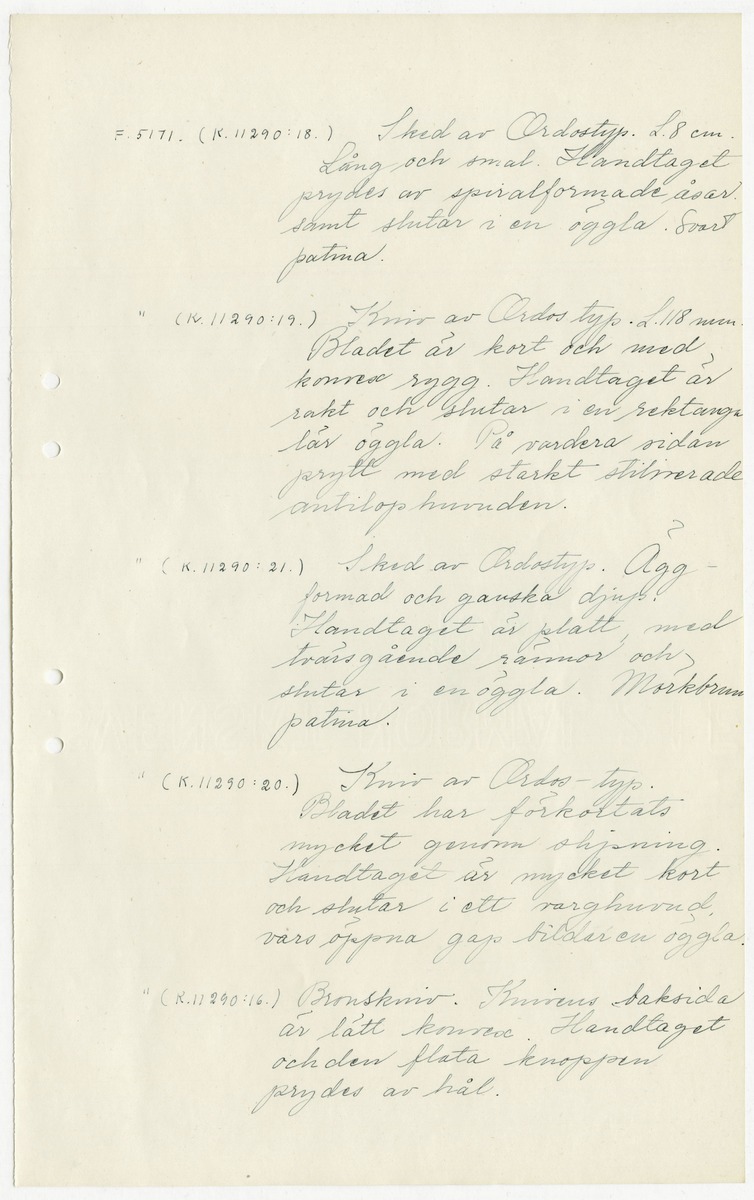 F. 5171. (K. 11290:18.) Sked av Ordostyp. L. 8 cm.
Lång och smal. Handtaget
prydes av spiralformade åsar
samt slutar i en öggla. Svart
patina.
" (K. 11290:19.) Kniv av Ordos typ. L. 118 mm.
Bladet är kort och med
konvex rygg. Handtaget är
rakt och slutar i en rektangu
lär öggla. På vardera sidan
prytt med starkt stiliserade
antilophuvuden.
" (K. 11290:21.) Sked av Ordostyp. Ägg-
formad och ganska djup.
Handtaget är platt, med
tvärsgående rännor och
slutar i en öggla. Mörkbrun
patina.
" (K. 11290:20.) Kniv av Ordos-typ.
Bladet har förkortats
mycket genom slipning.
Handtaget är mycket kort
och slutar i ett varghuvud,
vars öppna gap bildar en öggla.
" (K. 11290:16.) Bronskniv. Knivens baksida
är lätt konvex. Handtaget
och den flata knoppen
prydes av hål.